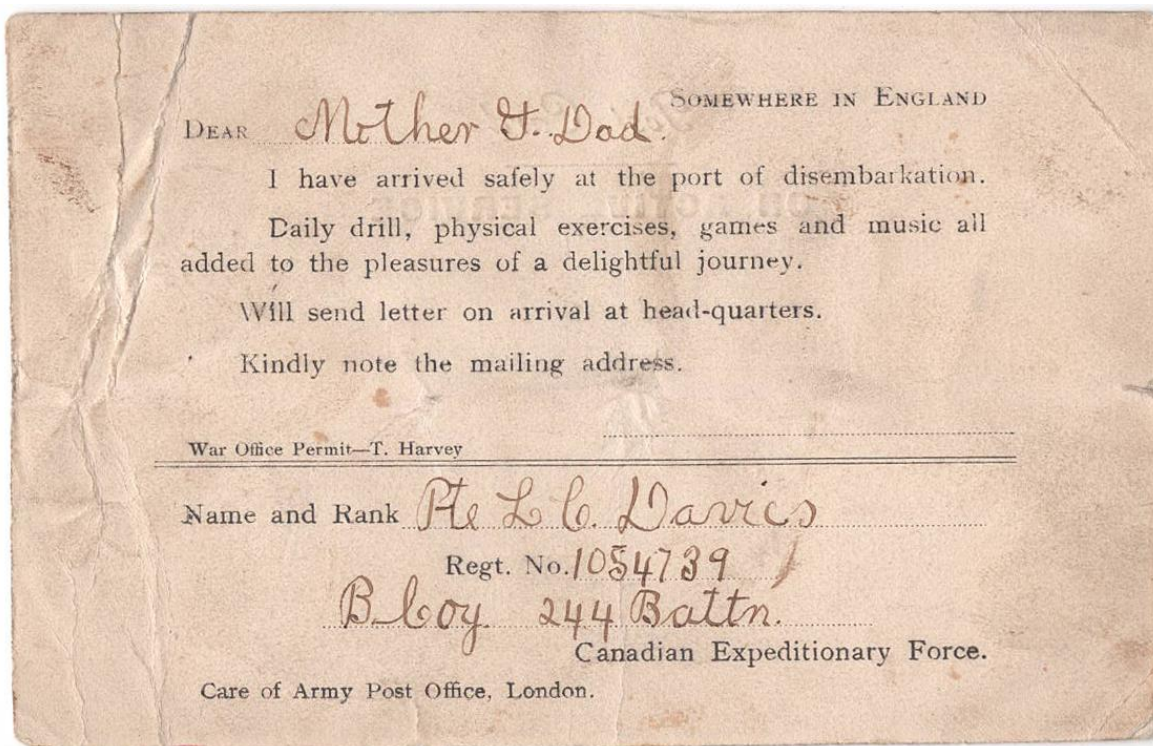 SOMEWHERE IN ENGLAND
DEAR Mother & Dad.
I have arrived safely at the port of disembarkation.
Daily drill, physical exercises, games and music all
added to the pleasures of a delightful journey.
Will send letter on arrival at head-quarters.
Kindly note the mailing address.
War Office Permit—T. Harvey
Name and Rank Pte L C. Davies
Regt. No. 1054739
B Coy. 244 Battn.
Canadian Expeditionary Force.
Care of Army Post Office, London.